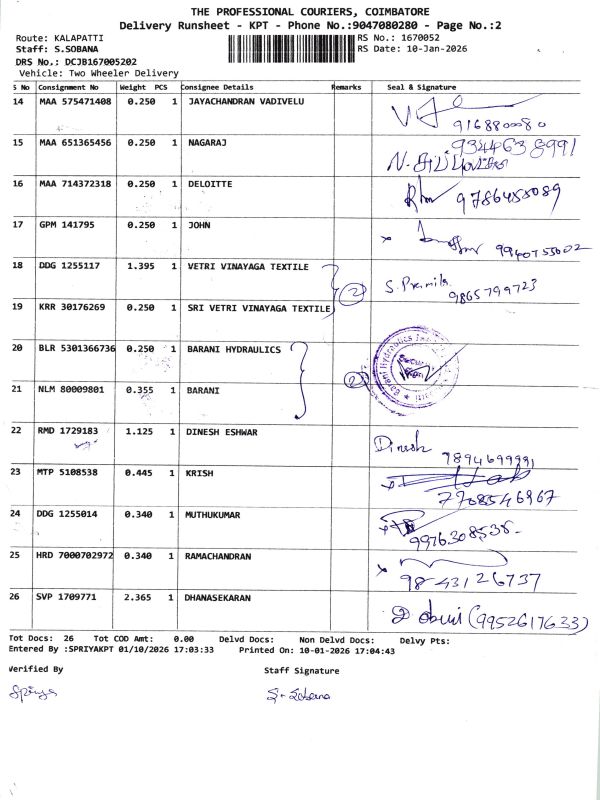 THE PROFESSIONAL COURIERS, COIMBATORE
Delivery Runsheet - KPT - Phone No.:9047080280 - Page No.:2
Route: KALAPATTI RS No.: 1670052
Staff: S.SOBANA RS Date: 10-Jan-2026
DRS No,: DCJB167005202
Vehicle: Two Wheeler Delivery
S No Consignment No Weight PCS Consignee Details Remarks Seal & Signature
14 MAA 575471408 0.250 1 JAYACHANDRAN VADIVELU
15 MAA 651365456 0.250 1 NAGARAJ 9344638991
16 MAA 714372318 0.250 1 DELOITTE
17 GPM 141795 0.250 1 JOHN
18 DDG 1255117 1.395 1 VETRI VINAYAGA TEXTILE 2 S. Premila
9865799723
19 KRR 30176269 0.250 1 SRI VETRI VINAYAGA TEXTILE
20 BLR 5301366736 0.250 1 BARANI HYDRAULICS 2
21 NLM 80009801 0.355 1 BARANI
22 RMD 1729183 1.125 1 DINESH ESHWAR Dinesh
7894699991
23 MTP 5108538 0.445 1 KRISH
7708546967
24 DDG 1255014 0.340 1 MUTHUKUMAR
9976308538
25 HRD 7000702972 0.340 1 RAMACHANDRAN
9843126737
26 SVP 1709771 2.365 1 DHANASEKARAN (9952617633)
Tot Docs: 26 Tot COD Amt: 0.00 Delvd Docs: Non Delvd Docs: Delvy Pts:
Entered By :SPRIYAKPT 01/10/2026 17:03:33 Printed On: 10-01-2026 17:04:43
Verified By Staff Signature
Spriya S. Sobana